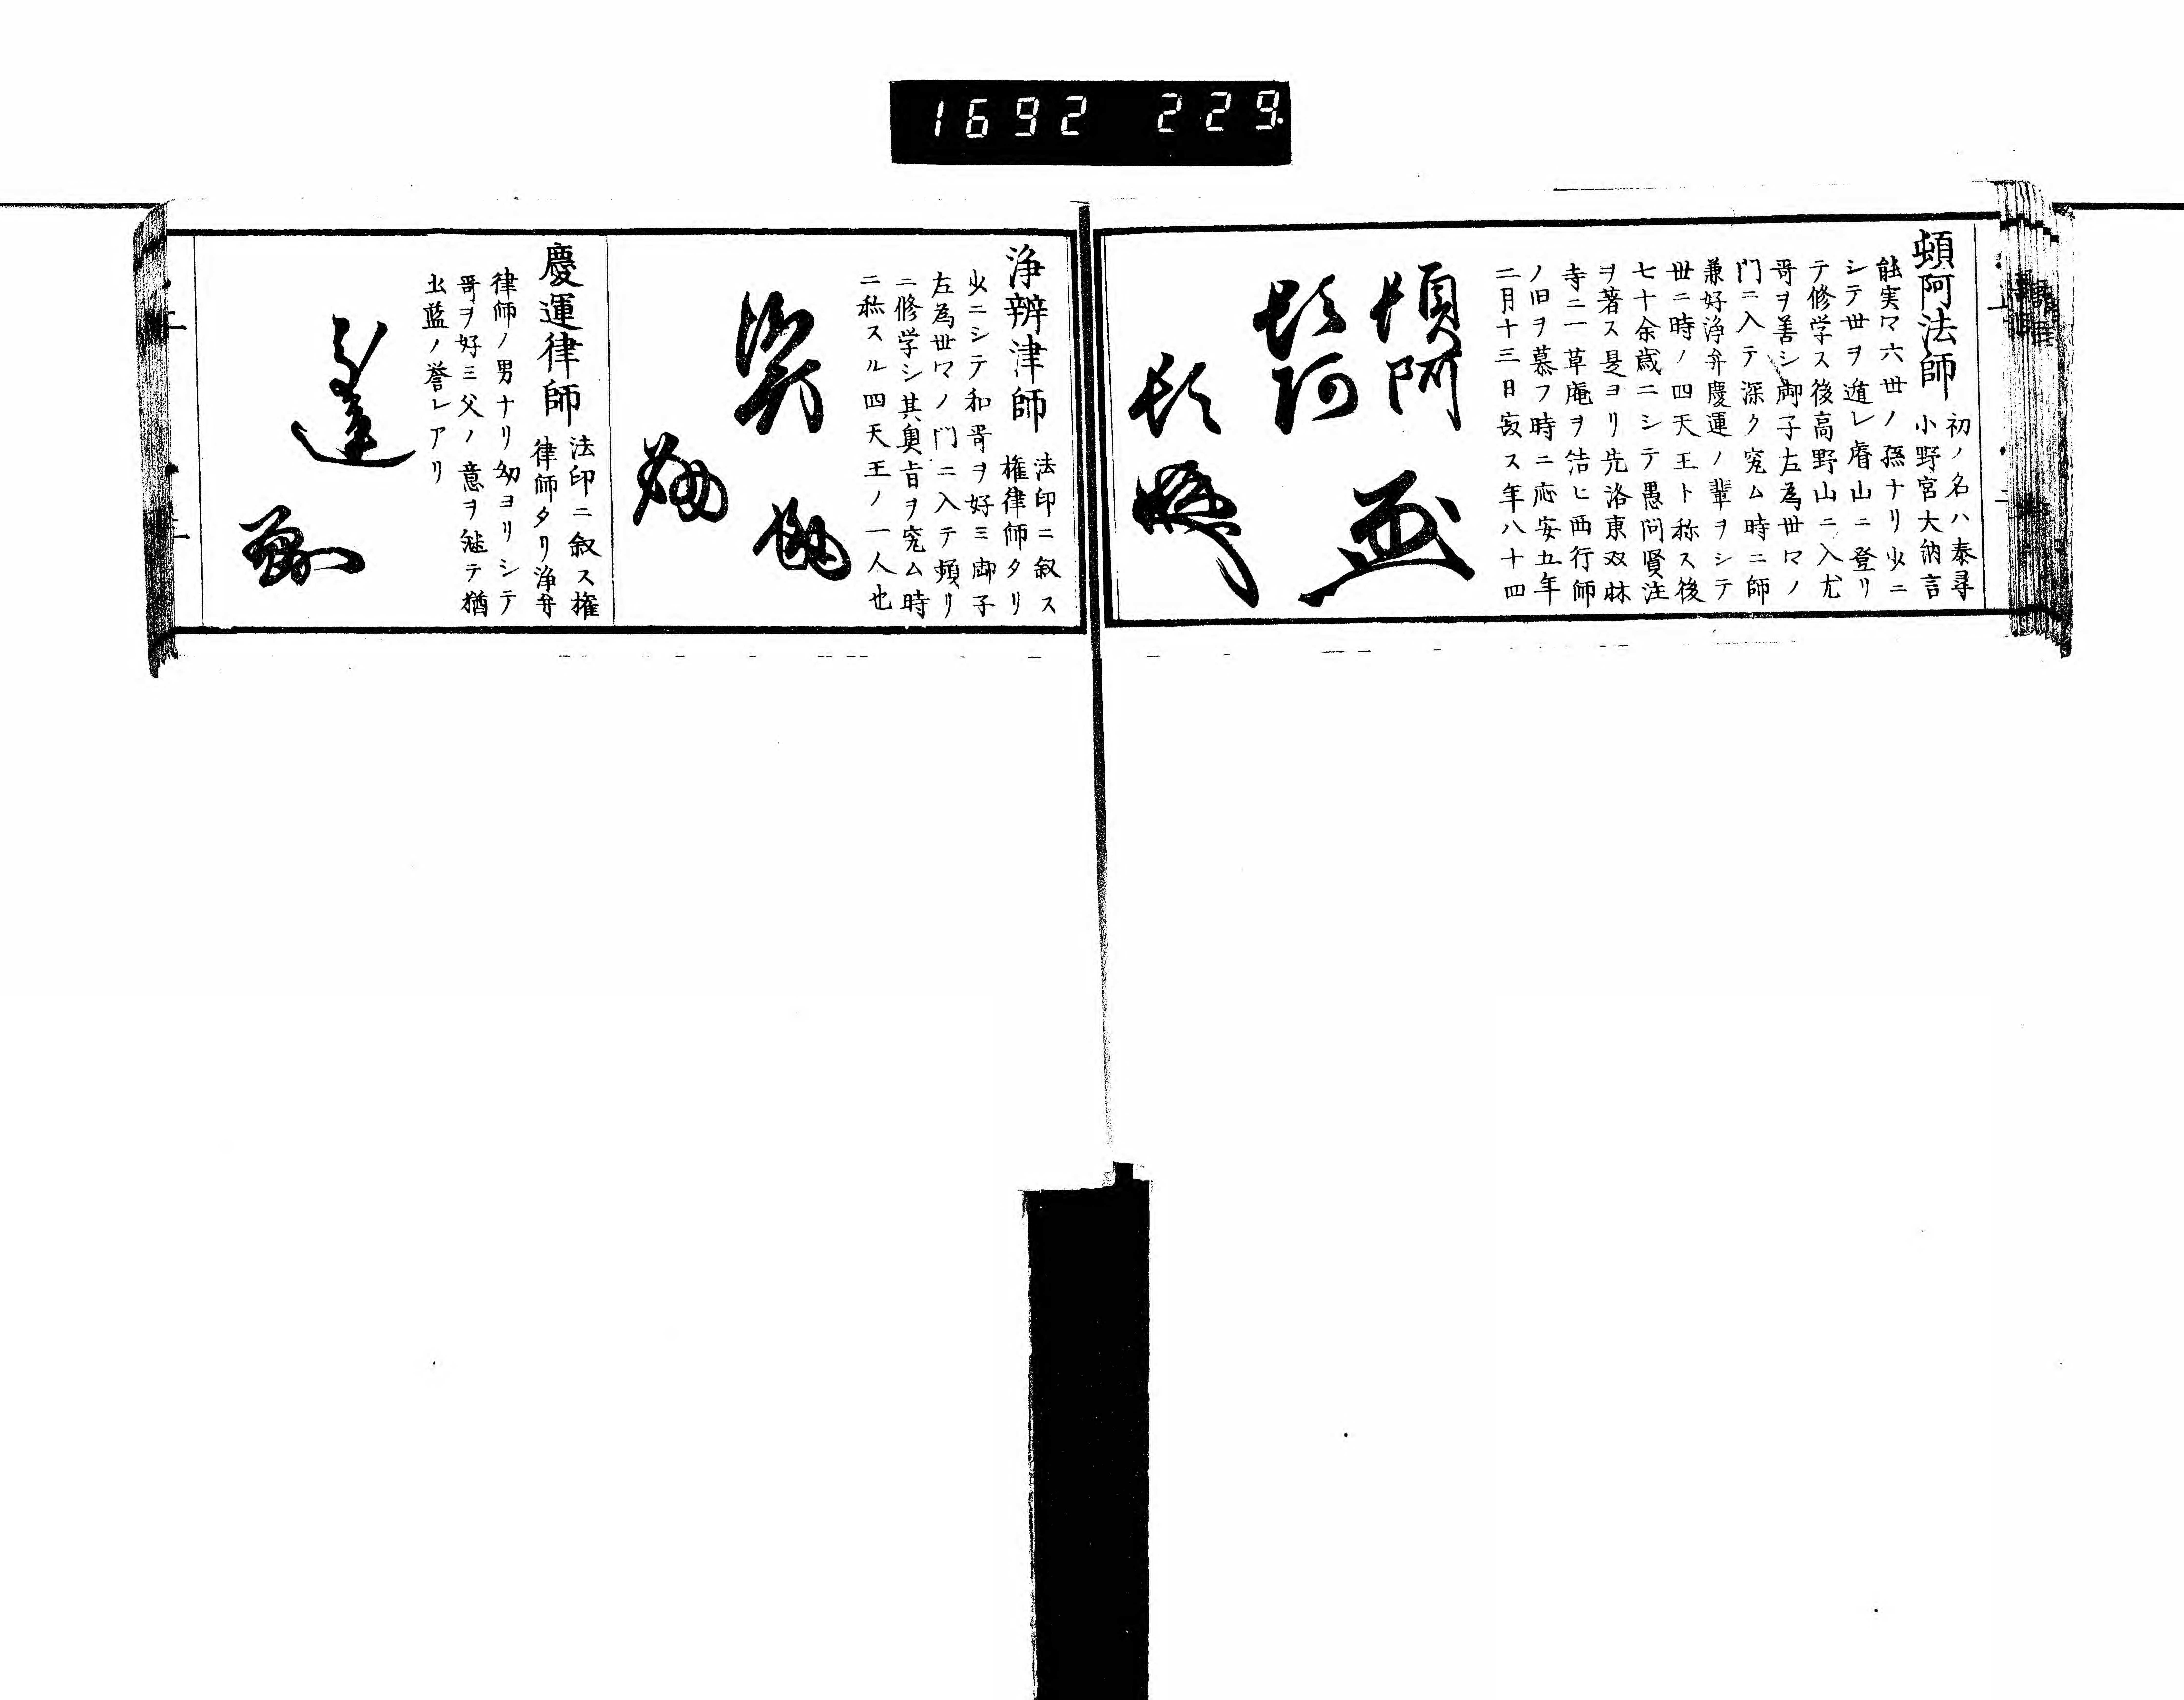 1692 229.
頓阿法師
初ノ名ハ泰尋
小野宮大納言
能実マ六世ノ孫ナリ少ニ
シテ世ヲ遁レ睿山ニ登リ
テ修学ス後高野山ニ入尤
哥ヲ善シ御子左為世マノ
門ニ入テ深ク究ム時ニ師
兼好浄弁慶運ノ輩ヲシテ
世ニ時ノ四天王ト称ス後
七十余歳ニシテ愚问賢注
ヲ著ス是ヨリ先洛東双林
寺ニ一草庵ヲ結ヒ西行師
ノ旧ヲ慕フ時ニ応安五年
二月十三日寂ス年八十四
頓阿
頓阿
頓
浄辨津師
法印ニ叙ス
権律師タリ
少ニシテ和哥ヲ好ミ御子
左為世マノ门ニ入テ頻リ
ニ修学シ其奥旨ヲ究ム時
ニ称スル四天王ノ一人也
慶運律師
法印ニ叙ス権
律師タリ浄弁
律師ノ男ナリ幼ヨリシテ
哥ヲ好ミ父ノ意ヲ継テ猶
出藍ノ誉レアリ